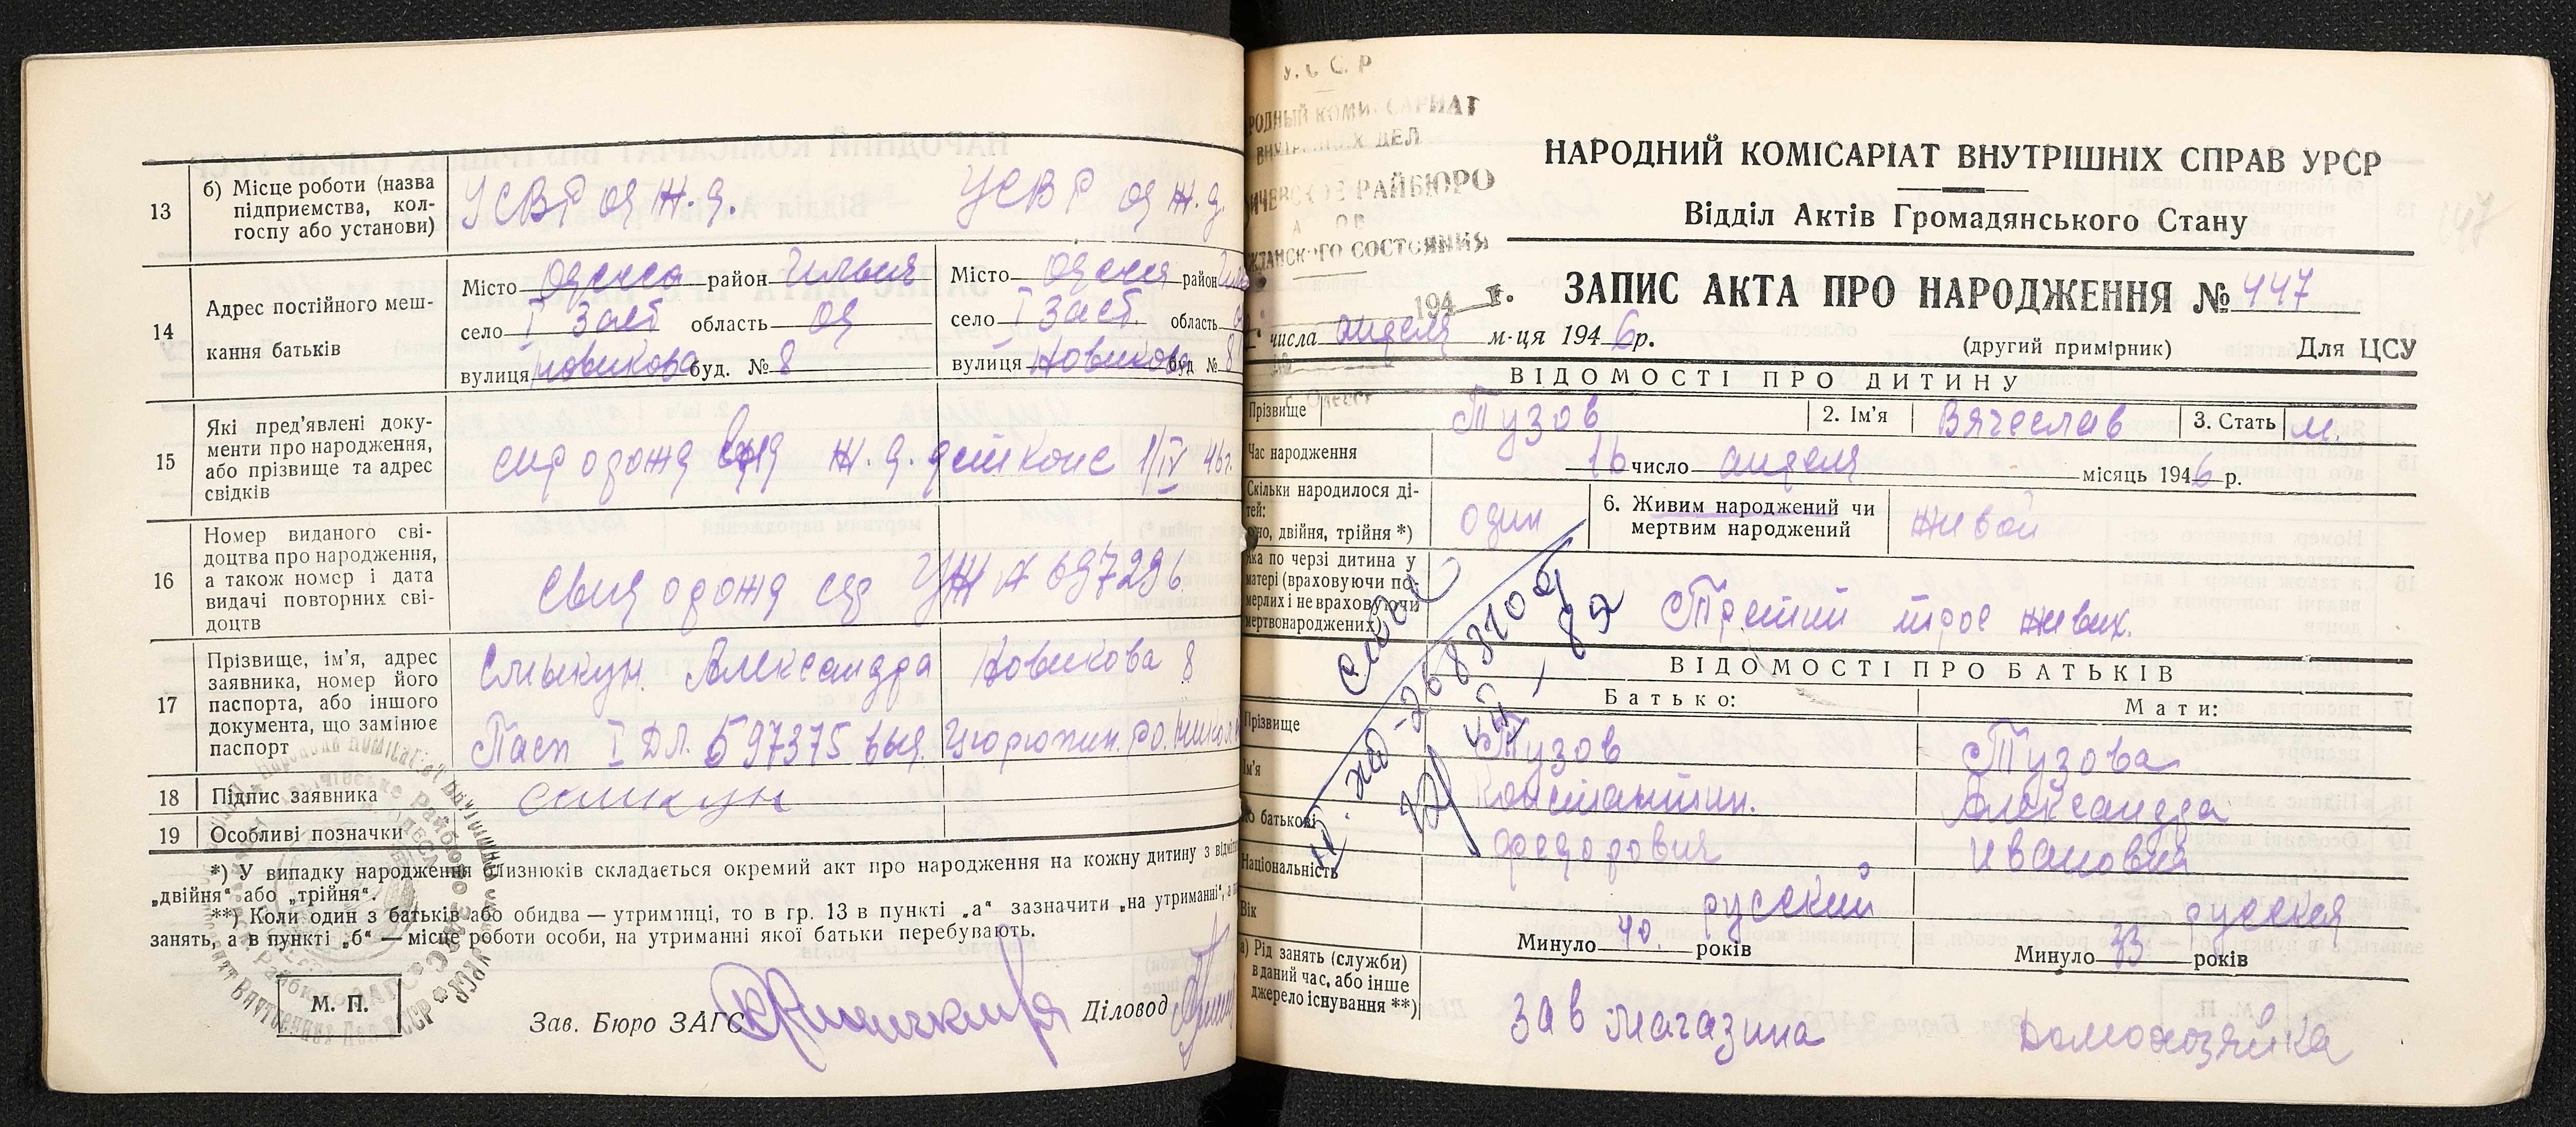 13
б) Місце роботи (назва
підприємства, кол-
госпу або установи)
УСВР Од Ж.д.
УСВР Од Ж.д.
14
Адрес постійного меш-
кання батьків
Місто Одесса район Ильич
село I Заст область Од
вулиця Новикова буд. № 8
Місто Одесса район
село I Заст. область
вулиця Новикова буд № 8
15
Які пред'явлені доку-
менти про народження,
або прізвище та адрес
свідків
спр о рожд Ж.д. 1/IV 46г.
16
Номер виданого сві-
доцтва про народження,
а також номер і дата
видачі повторних сві-
доцтв
о рожд УЖ № 697296
17
Прізвище, ім'я, адрес
заявника, номер його
паспорта, або іншого
документа, що замінює
паспорт
Александра Новикова 8
Пасп I ДЛ. 597375 выд.
18
Підпис заявника
19
Особливі позначки
*) У випадку народження близнюків складається окремий акт про народження на кожну дитину з
„двійня“ або „трійня“.
**) Коли один з батьків або обидва — утриманці, то в гр. 13 в пункті „а“ зазначити „на утриманні“,
занять, а в пункті „б“ — місце роботи особи, на утриманні якої батьки перебувають.
М. П.
Зав. Бюро ЗАГС
Діловод
У. С. С. Р
РОДНЫЙ КОМИССАРИАТ
ВНУТРЕННИХ ДЕЛ
ИЧЕВСКОЕ РАЙБЮРО
АКТОВ
ЖДАНСКОГО СОСТОЯНИЯ
194 г.
г. Одесса
НАРОДНИЙ КОМІСАРІАТ ВНУТРІШНІХ СПРАВ УРСР
Відділ Актів Громадянського Стану
447
ЗАПИС АКТА ПРО НАРОДЖЕННЯ № 447
числа апреля м-ця 1946 р.
(другий примірник)
Для ЦСУ
ВІДОМОСТІ ПРО ДИТИНУ
Прізвище
Тузов
2. Ім'я
Вячеслав
3. Стать
м.
Час народження
16 число апреля місяць 1946 р.
Скільки народилося ді-
тей:
но, двійня, трійня *)
один
6. Живим народжений чи
мертвим народжений
живой
Яка по черзі дитина у
матері (враховуючи по-
мерлих і не враховуючи
мертвонароджених)
Третий трое живых.
ВІДОМОСТІ ПРО БАТЬКІВ
Батько:
Мати:
Прізвище
Тузов
Тузова
Ім'я
Константин.
Александра
По батькові
Федорович
Ивановна
Національність
русский
русская
Вік
Минуло 40. років
Минуло 33 років
а) Рід занять (служби)
в даний час, або інше
джерело існування **)
Зав магазина
Домохозяйка